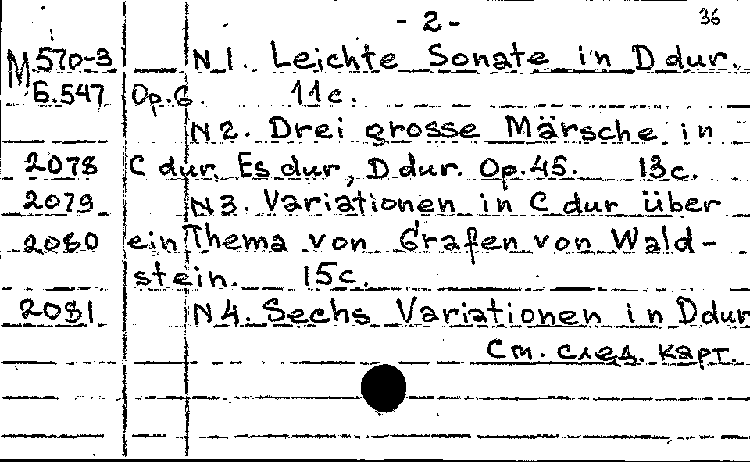 - 2 - 36
М 570-3 N 1. Leichte Sonate in D dur.
Б.547 Op. 6. 11 с.
N 2. Drei grosse Märsche in
2078 C dur, Es dur, D dur. Op. 45. 13 с.
2079 N 3. Variationen in C dur über
2080 ein Thema von Grafen von Wald-
stein. 15 с.
2081 N 4. Sechs Variationen in D dur
См. след. карт.